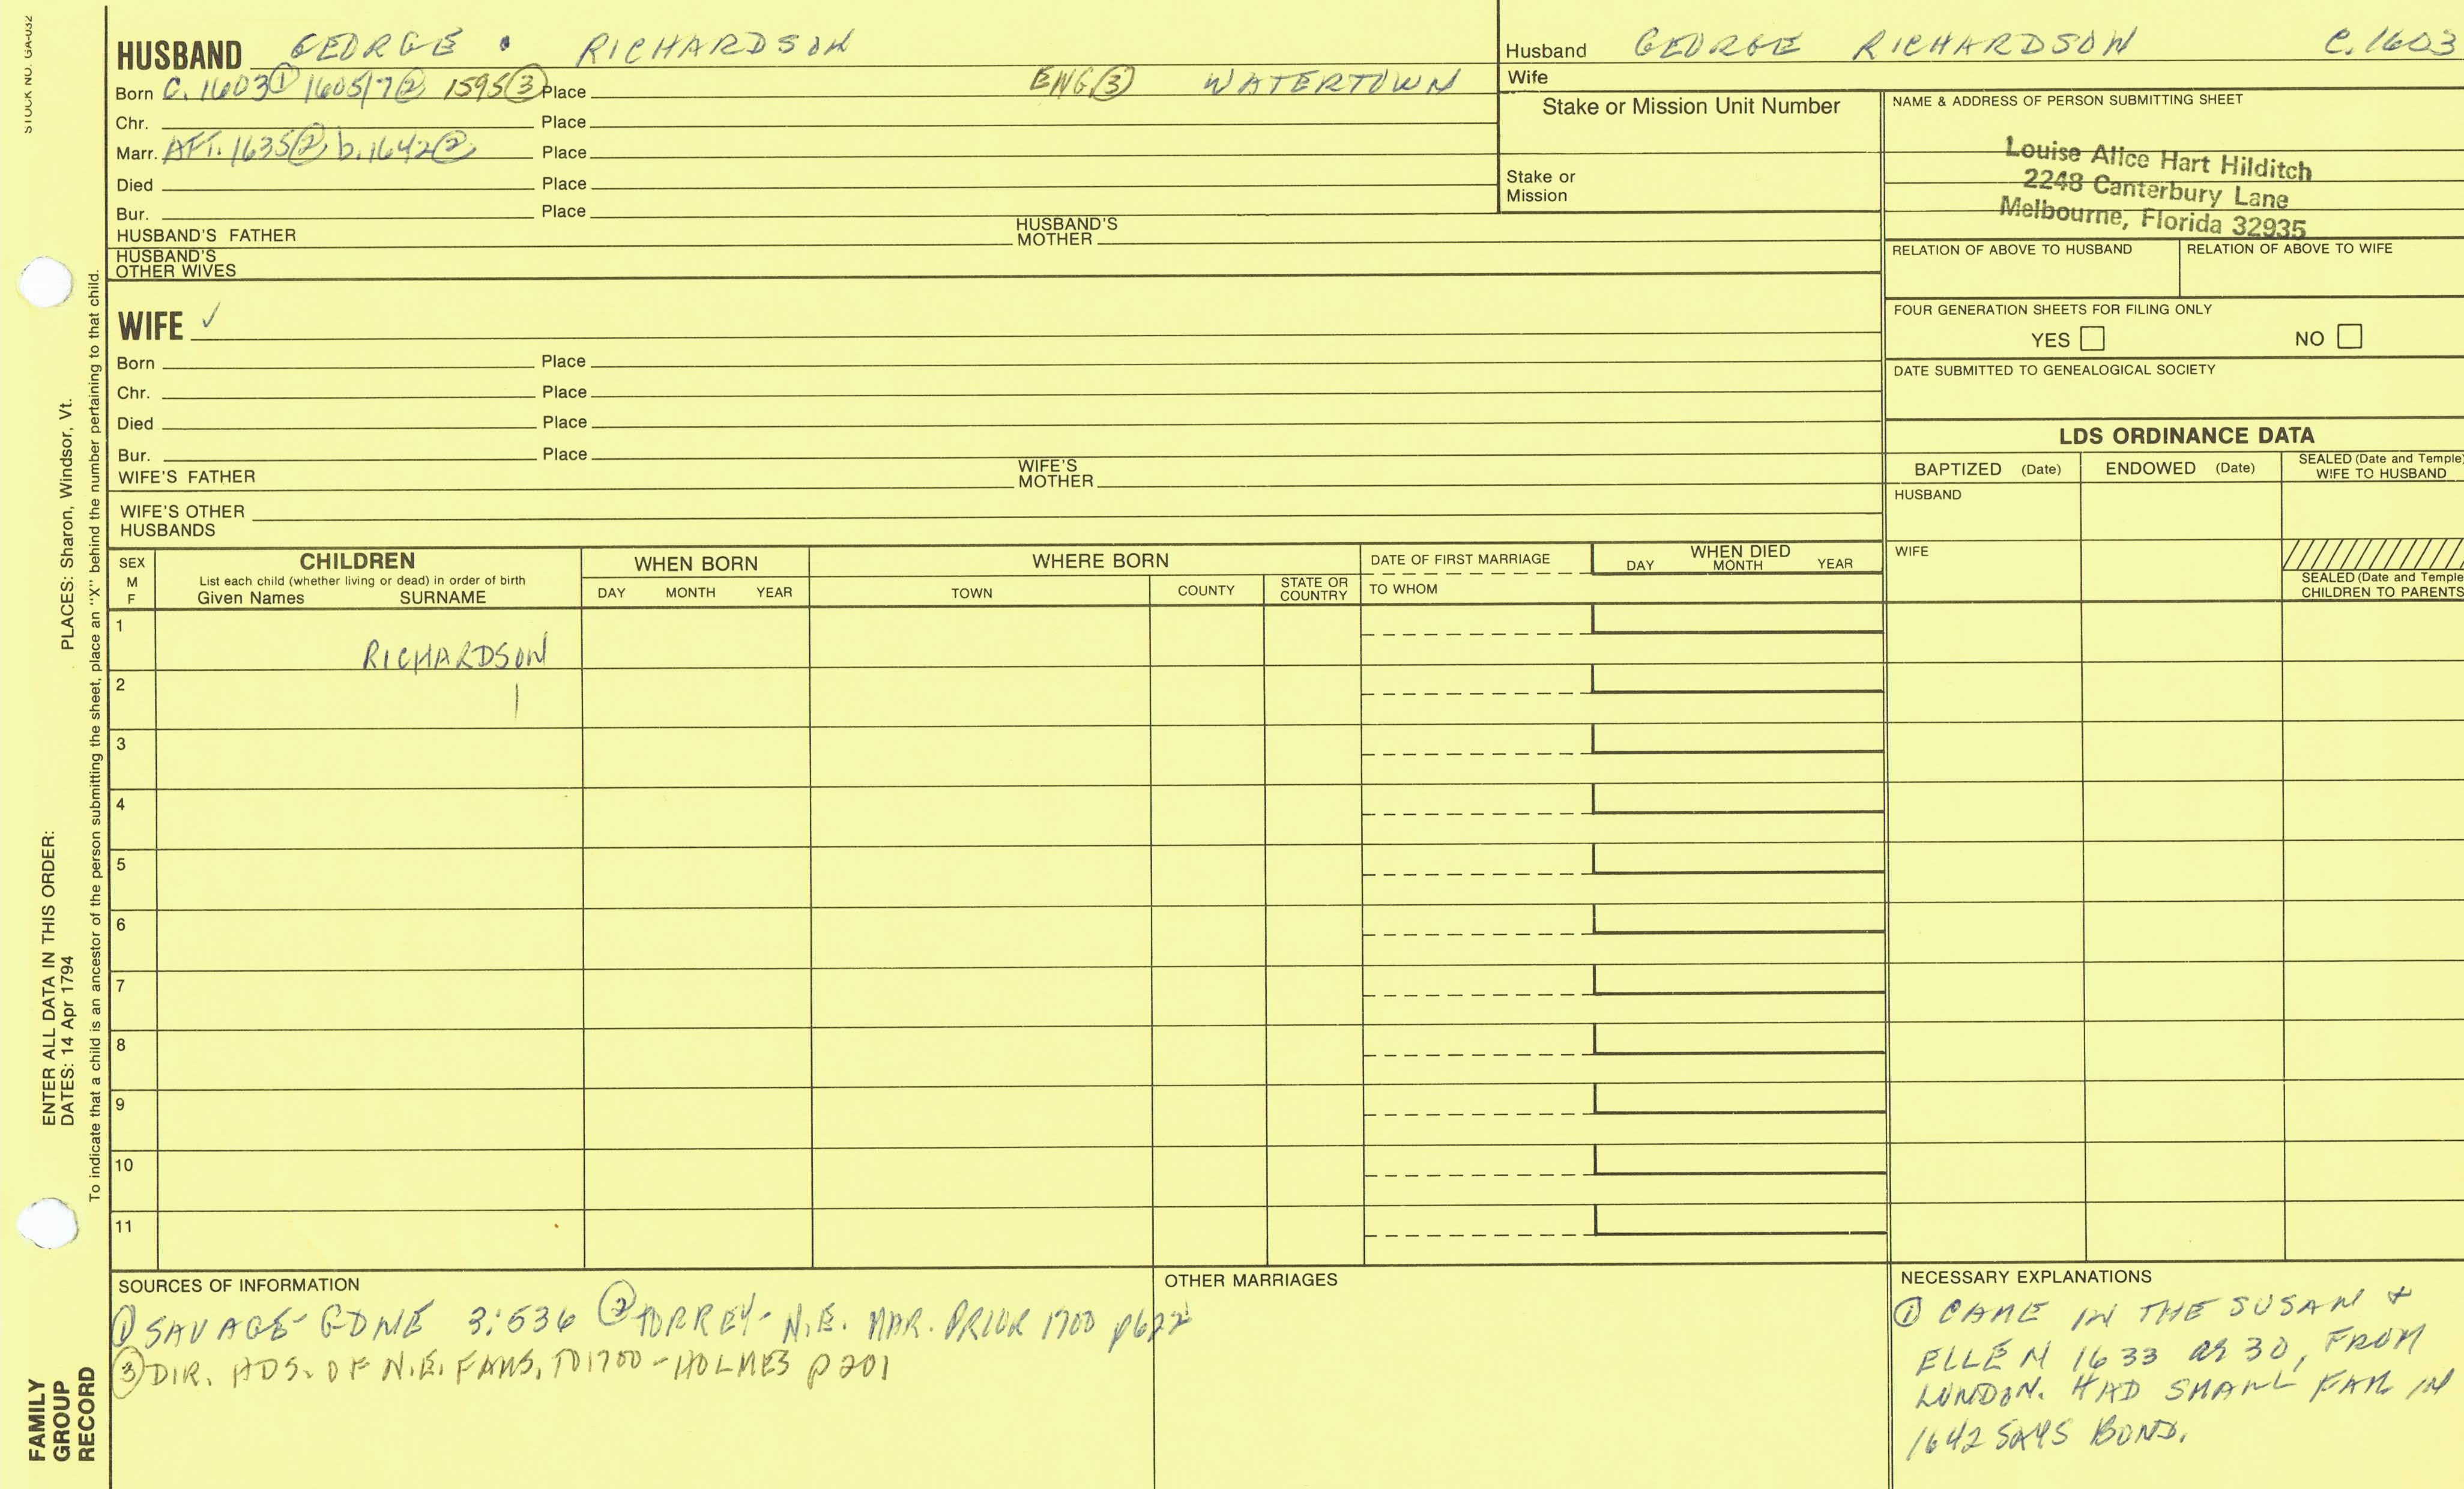 STOCK NO. GA-032
HUSBAND GEORGE RICHARDSON
Born C. 1603 ① 1605/7 ② 1595 ③ Place ENG. ③ WATERTOWN
Chr. Place
Marr. AFT. 1635 ② b. 1642 ② Place
Died Place
Bur. Place
HUSBAND'S FATHER HUSBAND'S MOTHER
HUSBAND'S OTHER WIVES
Husband GEORGE RICHARDSON C. 1603
Wife
Stake or Mission Unit Number
Stake or
Mission
NAME & ADDRESS OF PERSON SUBMITTING SHEET
Louise Alice Hart Hilditch
2248 Canterbury Lane
Melbourne, Florida 32935
RELATION OF ABOVE TO HUSBAND RELATION OF ABOVE TO WIFE
FOUR GENERATION SHEETS FOR FILING ONLY
YES NO
DATE SUBMITTED TO GENEALOGICAL SOCIETY
WIFE ✓
Born Place
Chr. Place
Died Place
Bur. Place
WIFE'S FATHER WIFE'S MOTHER
WIFE'S OTHER
HUSBANDS
LDS ORDINANCE DATA
BAPTIZED (Date) ENDOWED (Date) SEALED (Date and Temple) WIFE TO HUSBAND
HUSBAND
WIFE
SEALED (Date and Temple)
CHILDREN TO PARENTS
SEX
M
F
CHILDREN
List each child (whether living or dead) in order of birth
Given Names SURNAME
WHEN BORN
DAY MONTH YEAR
WHERE BORN
TOWN COUNTY STATE OR COUNTRY
DATE OF FIRST MARRIAGE
TO WHOM
WHEN DIED
DAY MONTH YEAR
1 RICHARDSON
2 |
3
4
5
6
7
8
9
10
11
SOURCES OF INFORMATION
① SAVAGE - GDNE 3:536 ② TORREY - N.E. MAR. PRIOR 1700 p622
③ DIR. HDS. OF N.E. FAMS. TO 1700 - HOLMES p 201
OTHER MARRIAGES
NECESSARY EXPLANATIONS
① CAME IN THE SUSAN &
ELLEN 1633 as 30, FROM
LONDON. HAD SMALL FAM IN
1642 SAYS BOND.
PLACES: Sharon, Windsor, Vt.
ENTER ALL DATA IN THIS ORDER:
DATES: 14 Apr 1794
To indicate that a child is an ancestor of the person submitting the sheet, place an "X" behind the number pertaining to that child.
FAMILY
GROUP
RECORD